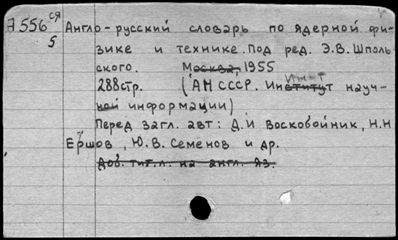 А556 ся
5
Англо-русский словарь по ядерной фи-
зике и технике. Под ред. Э.В. Шполь
ского. Москва, 1955
288стр. (АМ СССР. Институт науч-
ной информации)
Перед загл. авт: Д.И Воскобойник, Н.Н
Ершов, Ю.В. Семенов и др.
Доб. тит.л. на англ. яз.